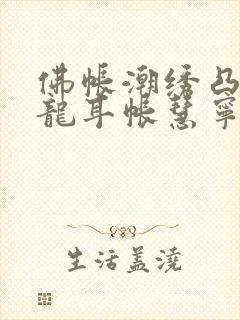 佛帐潮绣凸
龍耳帐慧寧
生活盖浇